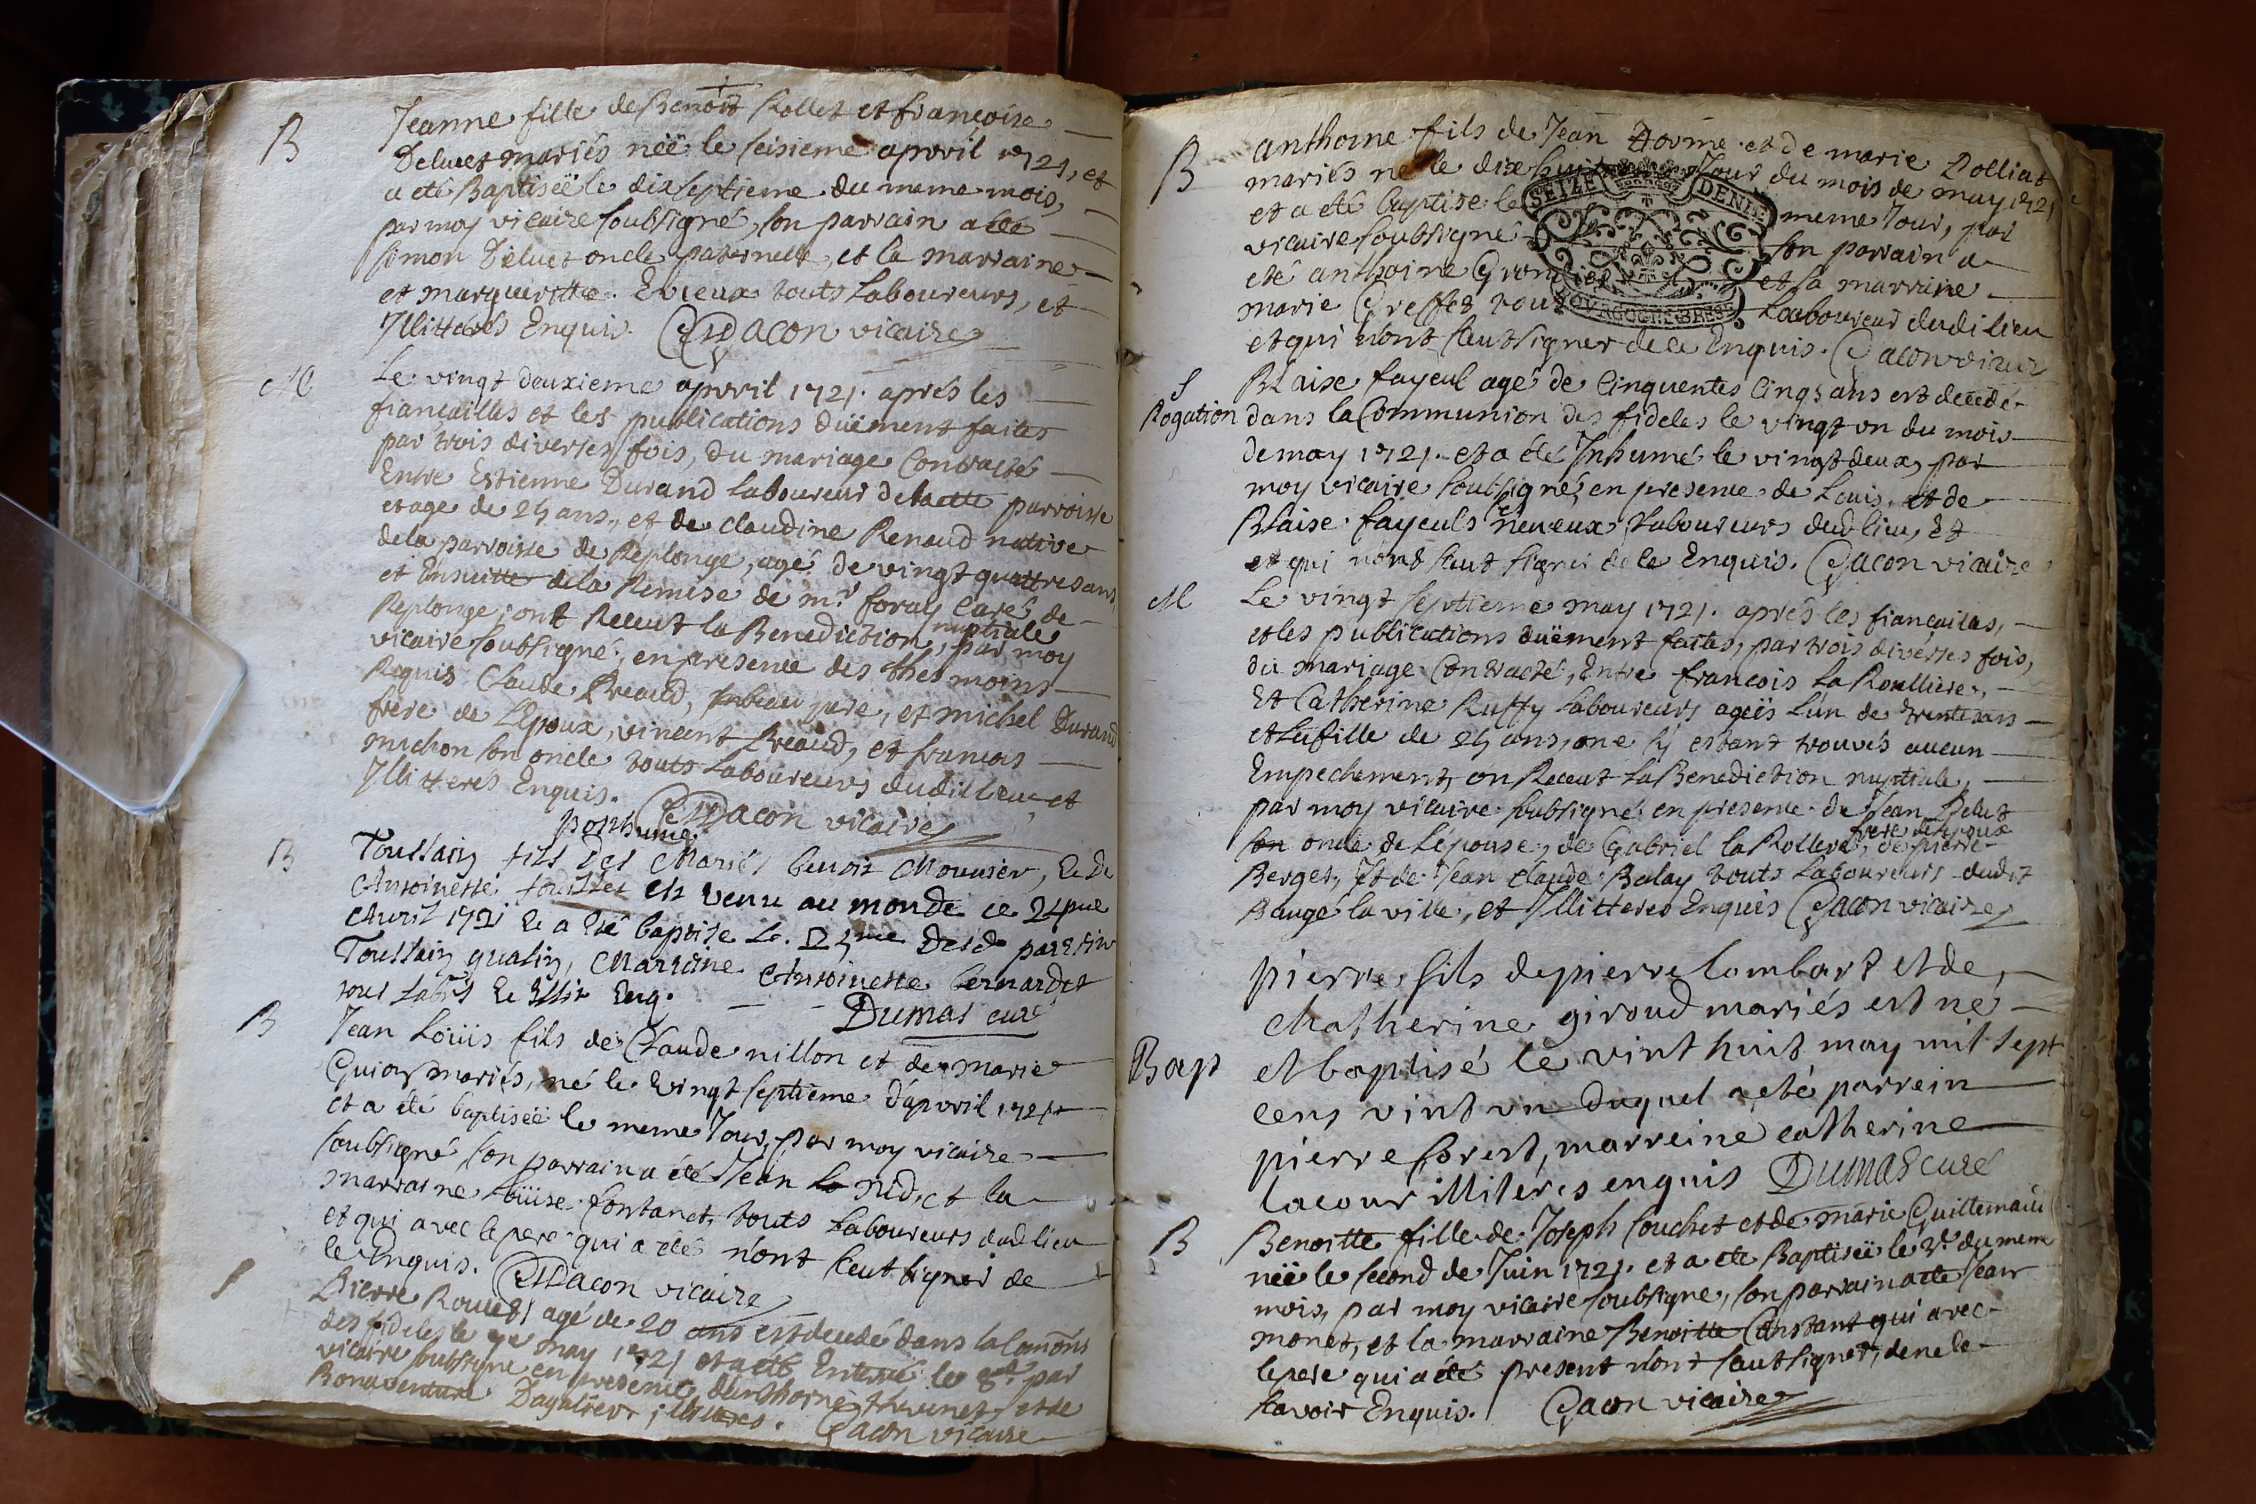 B
Jeanne fille de Benoit Rollet et françoise
Deluet mariés néë le seisieme apvril 1721, et
a eté Baptiséë le dixseptieme du meme mois,
par moy vicaire soubsigné, son parrain a eté
simon Deluet oncle paternelle, et la marraine
et marguerittte Evieux touts Laboureurs, et
Illitterés Enquis. Gacon vicaire
M
Le vingt deuxieme apvril 1721. aprés les
fiançailles et les publications duëment faites
par trois diverses fois, du mariage Contracté
Entre Estienne Durand Laboureur de cette parroisse
et age de 25 ans, et de claudine Renaud native
de la parroisse de Replonge, agé de vingt quattre ans
et Ensuitte de la Remise de mr. foray Curé de
Replonge, ont Receut la Benediction nuptiale, par moy
vicaire soubsigné, en presence des thesmoins
Requis Claude Breaud, beau pere, et michel Durand
frere de L'epoux, vincent Breaud, et francois
michon son oncle touts Laboureurs dudit lieu et
Illitterés Enquis. Gacon vicaire
B
posthume
Toussain fils des Mariés benoit Monnier, Et De
Antoinette est venu au monde ce 24me
Avril 1721 Et a Eté baptisé Le 25me Dud parrein
Toussain qualin, Marraine Antoinette bernardet
tous Labrs Et Illit Enq. Dumas curé
B
Jean Loüis fils de Claude nillon et de marie
Guion mariés, né le vingt septieme d'apvril 1721
et a eté baptiséë le meme Jour, par moy vicaire
soubsigné son parrain a eté Jean nid, et la
marraine Loüise fontanet, touts Laboureurs dud lieu
et qui avec le pere qui a eté n'ont sceut signer de
ce Enquis. Gacon vicaire
S
Pierre Rouet agé de 20 ans est decedé dans la Comōn
des fideles le 7e may 1721 et a eté Enterré le 8e par
vicaire soubsigne en presence d'Anthoine thevenet et de
Bonaventure Dagallier illitterés. Gacon vicaire
B
anthoine fils de Jean et de marie Dolliat
mariés né le dix huit Jour du mois de may 1721
et a eté baptisé le meme Jour, par
vicaire soubsigné son parrain a
eté anthoine et sa marraine
marie Greffet Laboureur dudi lieu
et qui n'ont sceut signer de ce Enquis. Gacon vicair
SEIZE DENIE
BOURGOGNE BRESSE
S
Rogation
BLaise fayeul agé de Cinquentes Cinqs ans est decedé
dans la Communion des fideles le vingt un du mois
de may 1721. et a eté Inhumé le vingt deux, par
moy vicaire soubsigné, en presence de Louis, et de
Blaise fayeuls neveux Laboureurs dud lieu, Et
et qui n'ont sceut signer de ce Enquis. Gacon vicaire
M
Le vingt septieme may 1721. aprés les fiancailles,
et les publications duëment faites, par trois diverses fois,
du mariage Contracté, Entre francois La Roulliere,
Et Catherine Ruffy Laboureurs ageës L'un de trente ans
et La fille de 25 ans, one s'y estant trouvés aucun
Empechement, on Receut La Benediction nuptiale,
par moy vicaire soubsigné en presence de Jean Delut
son oncle de L'epouse, de Gabriel la Rollere, frere de L'epoux de pierre
Berget, Et de Jean Claude Balay touts Laboureurs dudit
Baugé la ville, et Illitteres Enquis Gacon vicaire
Bap
pierre, fils de pierre lombart et de
Catherine giroud mariés est né
et baptisé le vint huit may mil sept
cens vint un duquel a eté parrein
pierre forest, marreine catherine
lacour illiterés enquis Dumas curé
B
Benoitte fille de Joseph Couchet et de marie Guillemaud
néë le second de Juin 1721. et a ete Baptiséë le 3e. du meme
mois, par moy vicaire soubsigne, son parrain a ete Jean
monet, et la marraine Benoitte Constant qui avec
le pere qui a eté present n'ont sceut signer, de ne le
scavoir Enquis. Gacon vicaire